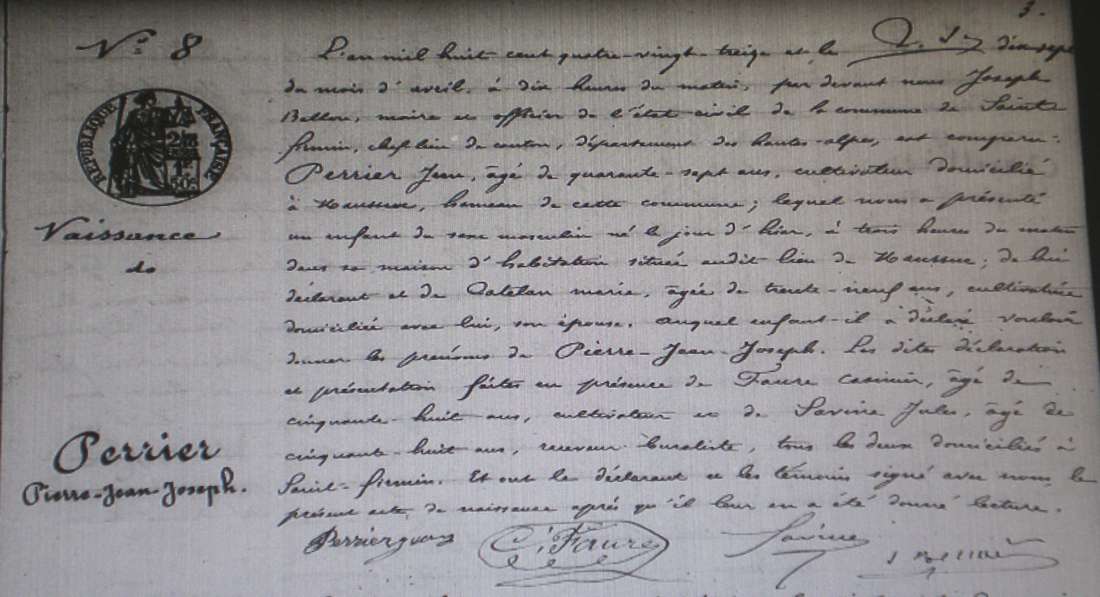 3.
N° 8
RÉPUBLIQUE FRANÇAISE
Naissance
de
Perrier
Pierre-Jean-Joseph.
L'an mil huit cent quatre-vingt-treize et le dix-sept
du mois d'avril, à dix heures du matin, par devant nous Joseph
maire et officier de l'état civil de la commune de Saint
firmin, chef lieu de canton, département des hautes-alpes, est comparu:
Perrier Jean, âgé de quarante-sept ans, cultivateur domicilié
à hameau de cette commune; lequel nous a présenté
un enfant du sexe masculin né le jour d'hier, à trois heures du matin
dans sa maison d'habitation située audit lieu de de lui
déclarant et de Catelan marie, âgée de trente-neuf ans, cultivatrice
domiciliée avec lui, son épouse. auquel enfant-il a déclaré vouloir
donner les prénoms de Pierre-Jean-Joseph. Les dites déclaration
et présentation faites en présence de Faure casimir, âgé de
cinquante-huit ans, cultivateur et de Savine Jules, âgé de
cinquante-huit ans, receveur-buraliste, tous les deux domiciliés à
Saint-firmin. Et ont le déclarant et les témoins signé avec nous le
présent acte de naissance après qu'il leur en a été donné lecture.
Perrier jean C. Faure Savine